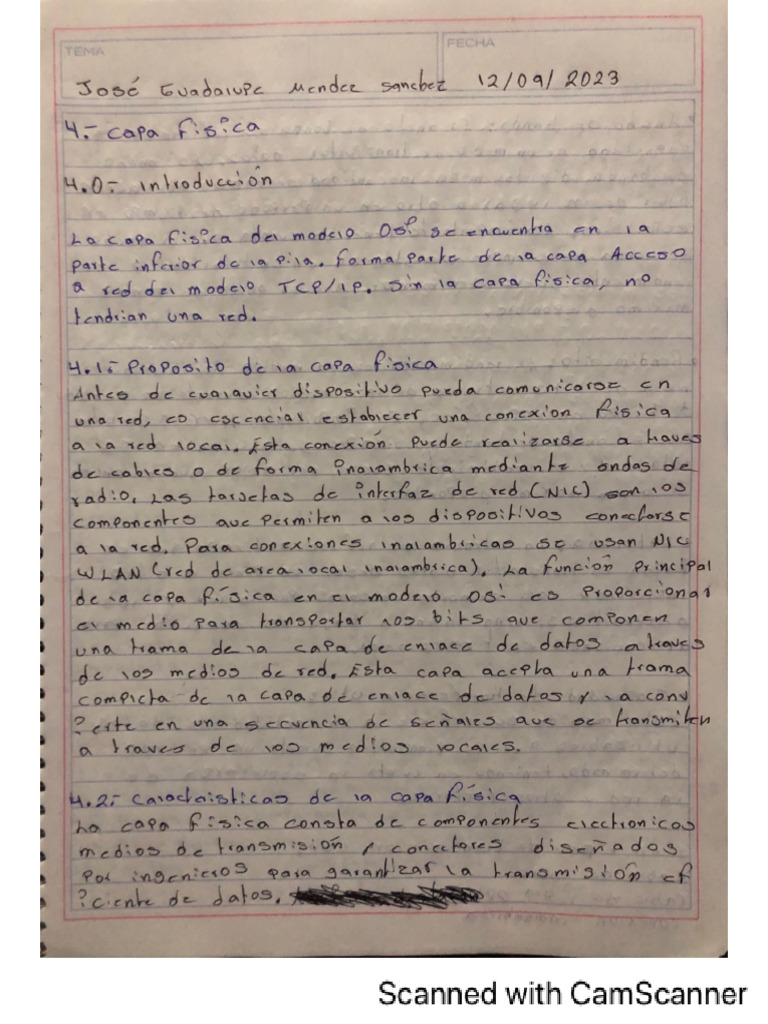 TEMA
FECHA
José Guadalupe Mendez Sanchez 12/09/2023
4.- Capa física
4.0.- introducción
La capa física del modelo OSI se encuentra en la
parte inferior de la pila. Forma parte de la capa Acceso
a red del modelo TCP/IP. Sin la capa física, no
tendrian una red.
4.1.- Proposito de la capa física
Antes de cualquier dispositivo pueda comunicarse en
una red, es escencial establecer una conexion física
a la red local. Esta conexión puede realizarse a traves
de cables o de forma inalambrica mediante ondas de
radio. Las tarjetas de interfaz de red (NIC) son los
componentes que permiten a los dispositivos conectarse
a la red. Para conexiones inalambricas se usan NIC
WLAN (red de area local inalambrica). La función principal
de la capa física en el modelo OSI es proporcionar
el medio para transportar los bits que componen
una trama de la capa de enlace de datos a traves
de los medios de red. Esta capa acepta una trama
completa de la capa de enlace de datos y la conv
ierte en una secuencia de señales que se transmiten
a traves de los medios locales.
4.2.- Caracteristicas de la capa física
La capa física consta de componentes electronicos
medios de transmisión y conectores diseñados
por ingenieros para garantizar la transmisión ef
iciente de datos.
Scanned with CamScanner